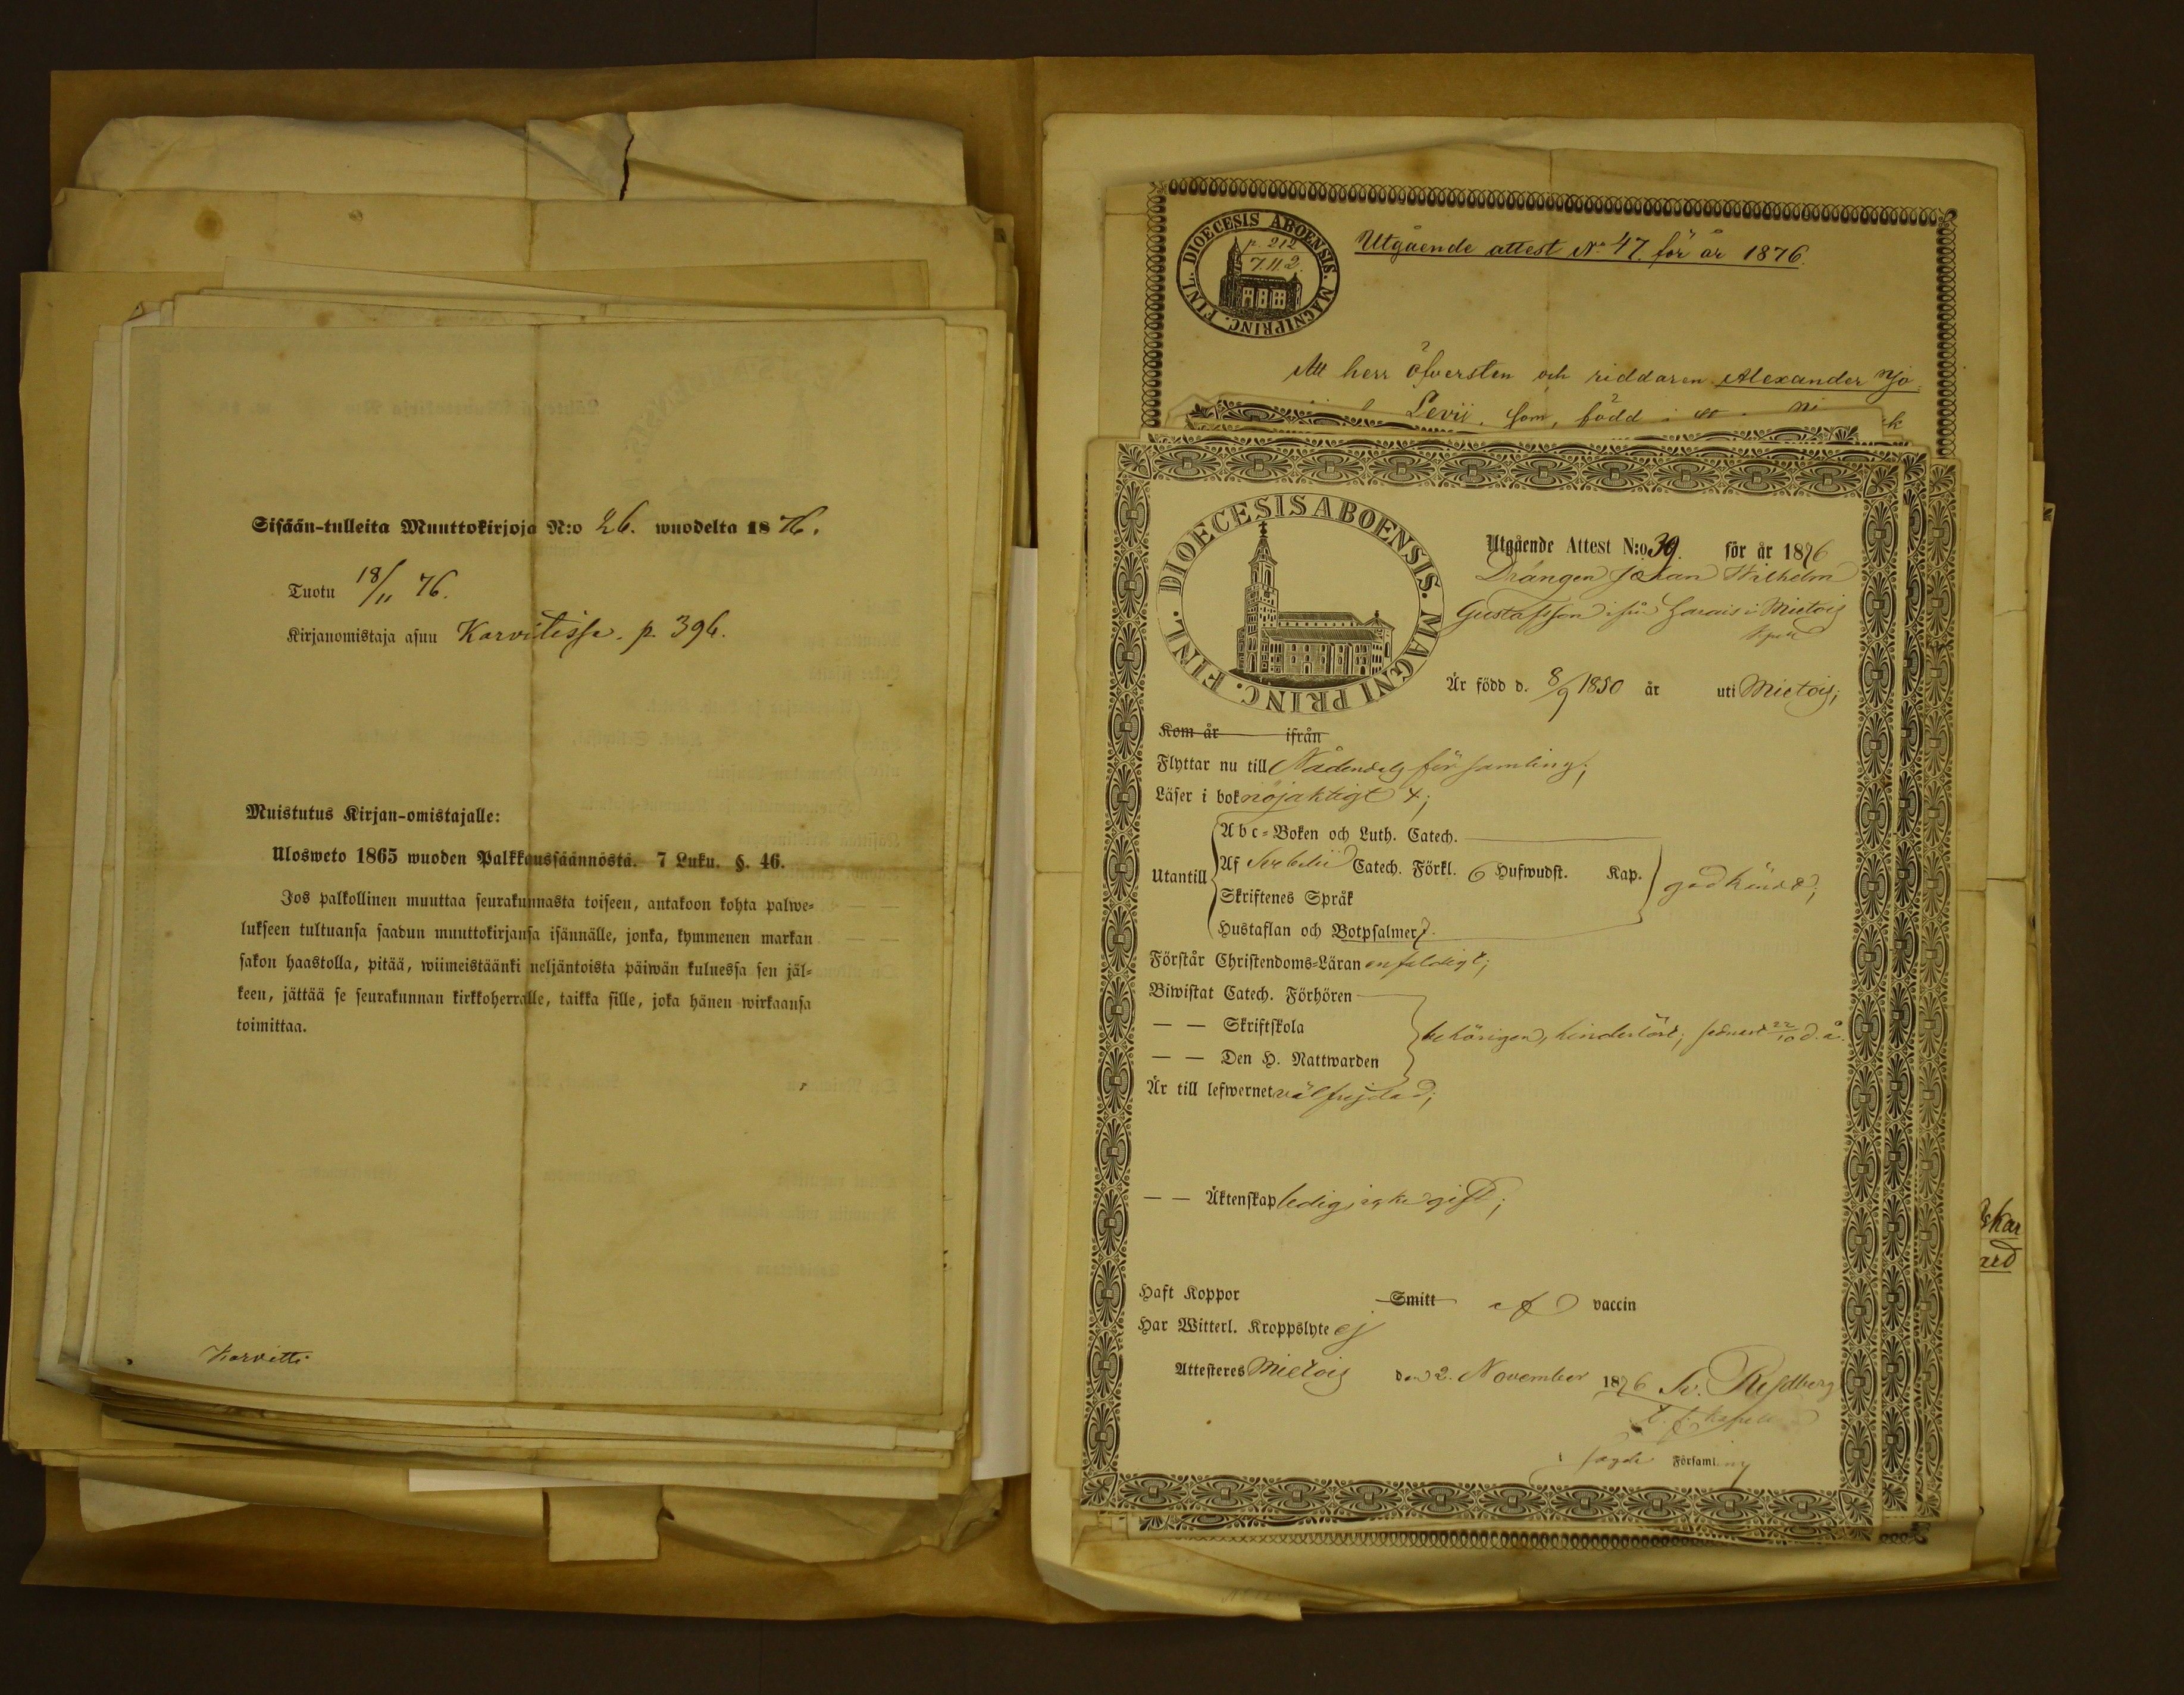 Sisään-tulleita Muuttokirjoja N:o 26. wuodelta 1876.
Tuotu 18/11 76.
Kirjanomistaja asuu Karvitissa. p. 396.
Muistutus Kirjan-omistajalle:
Ulosweto 1865 wuoden Palkkaussäännöstä. 7 Luku. §. 46.
Jos palkollinen muuttaa seurakunnasta toiseen, antakoon kohta palwe=
lukseen tultuansa saadun muuttokirjansa isännälle, jonka, kymmenen markan
sakon haastolla, pitää, wiimeistäänki neljäntoista päiwän kuluessa sen jäl=
keen, jättää se seurakunnan kirkkoherralle, taikka sille, joka hänen wirkaansa
toimittaa.
Karvitti
DIOECESIS ABOENSIS. MAGNI PRINC. FINL.
p. 212
7.11.2.
Utgående attest No 47 för år 1876.
Att herr Öfversten och riddaren Alexander
Levii, som, född i
DIOECESIS ABOENSIS. MAGNI PRINC. FINL.
Utgående Attest N:o 39. för år 1876
Drängen Johan Wilhelm
Gustafsson ifrån i Mietois
Är född d. 8/9 1850 år uti Mietois;
Kom år ifrån
Flyttar nu till Nådendals församling;
Läser i bok nöjaktigt
Utantill
Abc=Boken och Luth. Catech.
Af Catech. Förkl. 6 Hufwudst. Kap.
Skriftenes Språk
Hustaflan och Botpsalmer
godkändt;
Förstår Christendoms=Läran enfaldigt;
Biwistat Catech. Förhören
— — Skriftskola
— — Den H. Nattwarden
behörigen, hinderlöst, senast 22/10 d. å.
Är till lefwernet välfrejdad;
— — Äktenskap ledig, icke gift;
Haft Koppor Smitt af vaccin
Har Witterl. Kroppslyte ej
Attesteres Mietois den 2. November 1876
t. f. kapellan
i sagde Församling
skar
ard